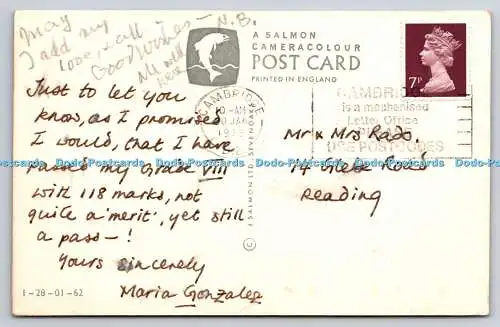 May
I add my
love & all
Good Wishes - N.B.
All well
here
A SALMON
CAMERACOLOUR
POST CARD
PRINTED IN ENGLAND
7P
CAMBRIDGE
10-AM
CAMBRIDGE
is a mechanised
Letter Office
USE POSTCODES
Just to let you
know, as I promised
I would, that I have
passed my Grade VIII
with 118 marks, not
quite a 'merit', yet still
a pass - !
Yours sincerely
Maria Gonzalez
Mr & Mrs Rado
14 Glebe Road
Reading
© J SALMON LTD. SEVENOAKS
1-28-01-62
Dodo-Postcards Dodo-Postcards Dodo-Postcards Dodo-Postcards Dodo-Postcards